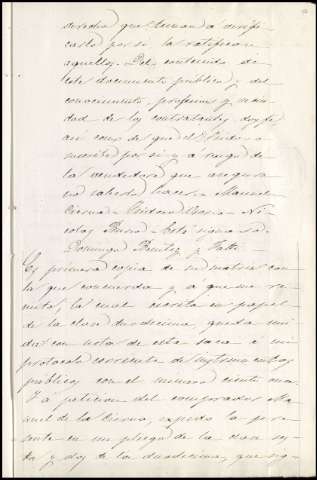 derecho que tienen a verifi-
carlo por si, la ratifican
aquellos. Del contenido de
este documento público, y del
conocimiento, profesion y vecin-
dad de los contratantes, doy fe,
asi como de que el
por si y a ruego de
la vendedora que asegura
no saberlo hacer = Manuel
Cierva = Isidoro = Ni-
colas = Está signado.
Domingo Benitez y
Es primera copia de su matriz con
la que concuerda y a que me re-
mito, la cual escrita en papel
de la clase duodecima, queda uni-
da con nota de esta saca á mi
protocolo corriente de instrumentos
públicos con el número ciento
Y a peticion del comprador Ma-
nuel de la Cierva, expido la pre-
sente en un pliego de la clase
y dos de la duodecima, que sig-